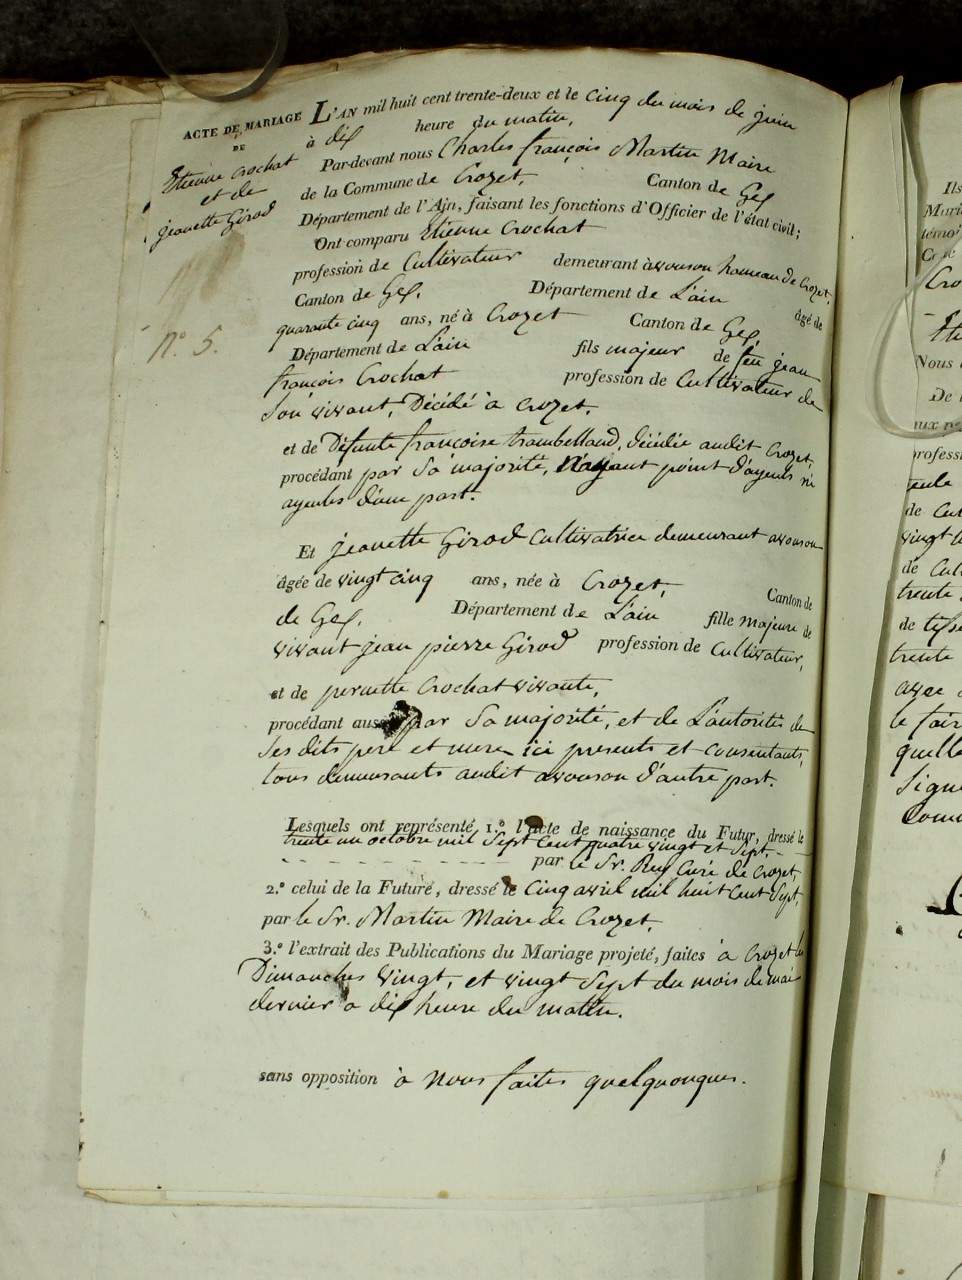 ACTE DE MARIAGE
DE
Etienne Crochat
et de
jeanette Girod
N.º 5.
L'AN mil huit cent trente-deux et le cinq du mois de juin
à dix heure du matin,
Par-devant nous Charles françois Martin Maire
de la Commune de Crozet, Canton de Gex
Département de l'Ain, faisant les fonctions d'Officier de l'état civil;
Ont comparu Etienne Crochat
profession de Cultivateur demeurant à avouson hameau de Crozet,
Canton de Gex, Département de L'ain âgé de
quarante cinq ans, né à Crozet Canton de Gex,
Département de L'ain fils majeur de feu jean
françois Crochat profession de Cultivateur de
son vivant, Décédé à Crozet,
et de Défunte françoise trambelland, décédée audit Crozet,
procédant par Sa majorité, n'ayant point d'ayeuls ni
ayeules d'une part.
Et jeanette Girod Cultivatrice demeurant avouson
âgée de vingt cinq ans, née à Crozet, Canton de
de Gex, Département de L'ain fille majeure de
vivant jean pierre Girod profession de Cultivateur,
et de pernette Crochat vivante,
procédant aussi par Sa majorité, et de L'autorité de
Ses dits pere et mere ici presents et consentants,
tous demeurants audit avouson d'autre part.
Lesquels ont représenté 1.º l'acte de naissance du Futur, dressé le
trente un octobre mil Sept Cent quatre vingt et Sept,
par le Sr. Rey Curé de Crozet,
2.º celui de la Future, dressé le Cinq avril mil huit Cent Sept,
par le Sr. Martin Maire de Crozet,
3.º l'extrait des Publications du Mariage projeté, faites à Crozet les
Dimanches Vingt, et vingt Sept du mois de mai
dernier a dix heure du matin.
sans opposition à nous faites quelquonques.